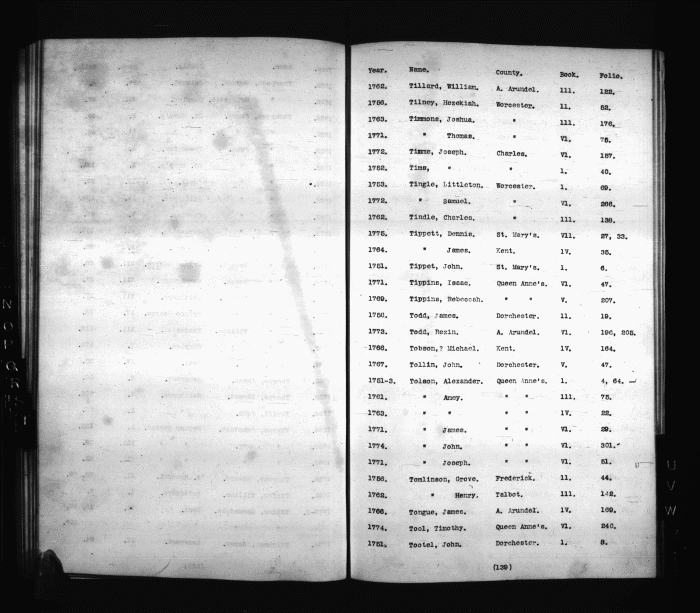 Year. Name. County. Book. Folio.
1762. Tillard, William. A. Arundel. 111. 122.
1756. Tilney, Hezekiah. Worcester. 11. 52.
1763. Timmons, Joshua. " 111. 176.
1771. " Thomas. " V1. 75.
1772. Timms, Joseph. Charles. V1. 157.
1752. Tims, " " 1. 40.
1753. Tingle, Littleton. Worcester. 1. 69.
1772. " Samuel. " V1. 266.
1762. Tindle, Charles. " 111. 139.
1775. Tippett, Dennis. St. Mary's. V11. 27, 33.
1764. " James. Kent. 1V. 35.
1751. Tippet, John. St. Mary's. 1. 6.
1771. Tippins, Isaac. Queen Anne's. V1. 47.
1769. Tippins, Rebeccah. " " V. 207.
1756. Todd, James. Dorchester. 11. 19.
1773. Todd, Rezin. A. Arundel. V1. 190, 205.
1766. Tobson,? Michael. Kent. 1V. 164.
1767. Tollin, John. Dorchester. V. 47.
1751-3. Tolson, Alexander. Queen Anne's. 1. 4, 64.
1761. " Amey. " " 111. 75.
1763. " " " " 1V. 22.
1771. " James. " " V1. 29.
1774. " John. " " V1. 301.
1771. " Joseph. " " V1. 51.
1756. Tomlinson, Grove. Frederick. 11. 44.
1762. " Henry. Talbot. 111. 142.
1766. Tongue, James. A. Arundel. 1V. 169.
1774. Tool, Timothy. Queen Anne's. V1. 240.
1751. Tootel, John. Dorchester. 1. 8.
(139)
U V W